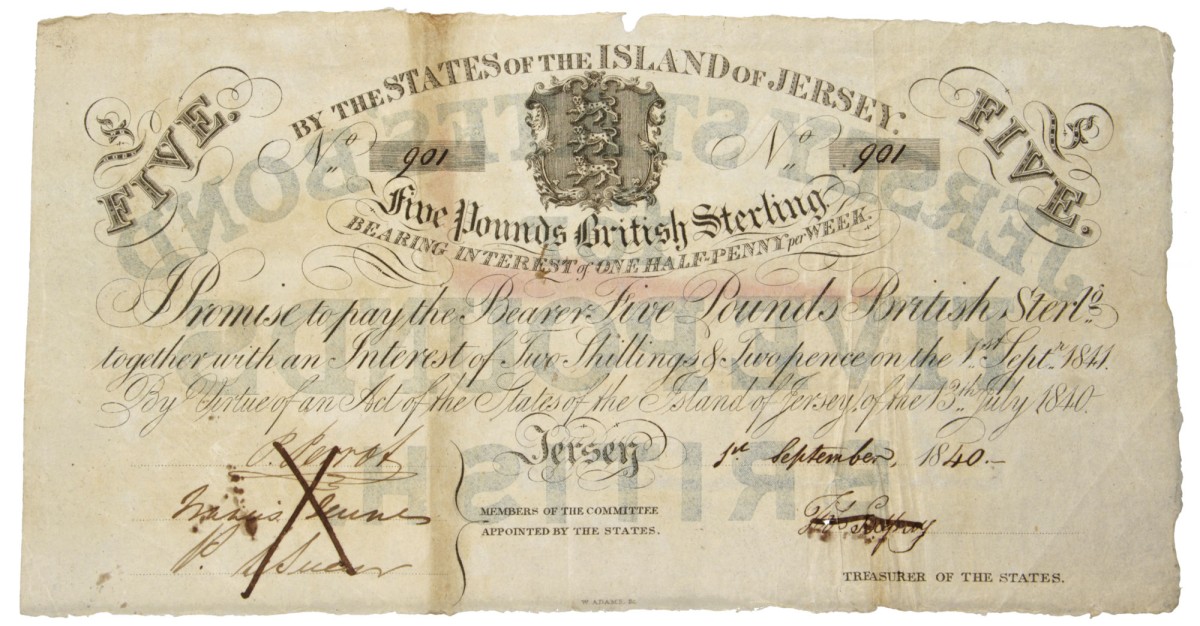 BY THE STATES OF THE ISLAND OF JERSEY.
£5 FIVE.
£5 FIVE.
No. 901
No. 901
Five Pounds British Sterling
BEARING INTEREST of ONE HALF-PENNY per WEEK.
I Promise to pay the Bearer Five Pounds British Sterlg.
together with an Interest of Two Shillings & Twopence on the 1st. Septr. 1841.
By Virtue of an Act of the States of the Island of Jersey, of the 13th. July 1840.
Jersey 1st September, 1840.
P. Perrot
MEMBERS OF THE COMMITTEE
APPOINTED BY THE STATES.
TREASURER OF THE STATES.
JERSEY STATES' BOND
FIVE POUNDS
BRITISH